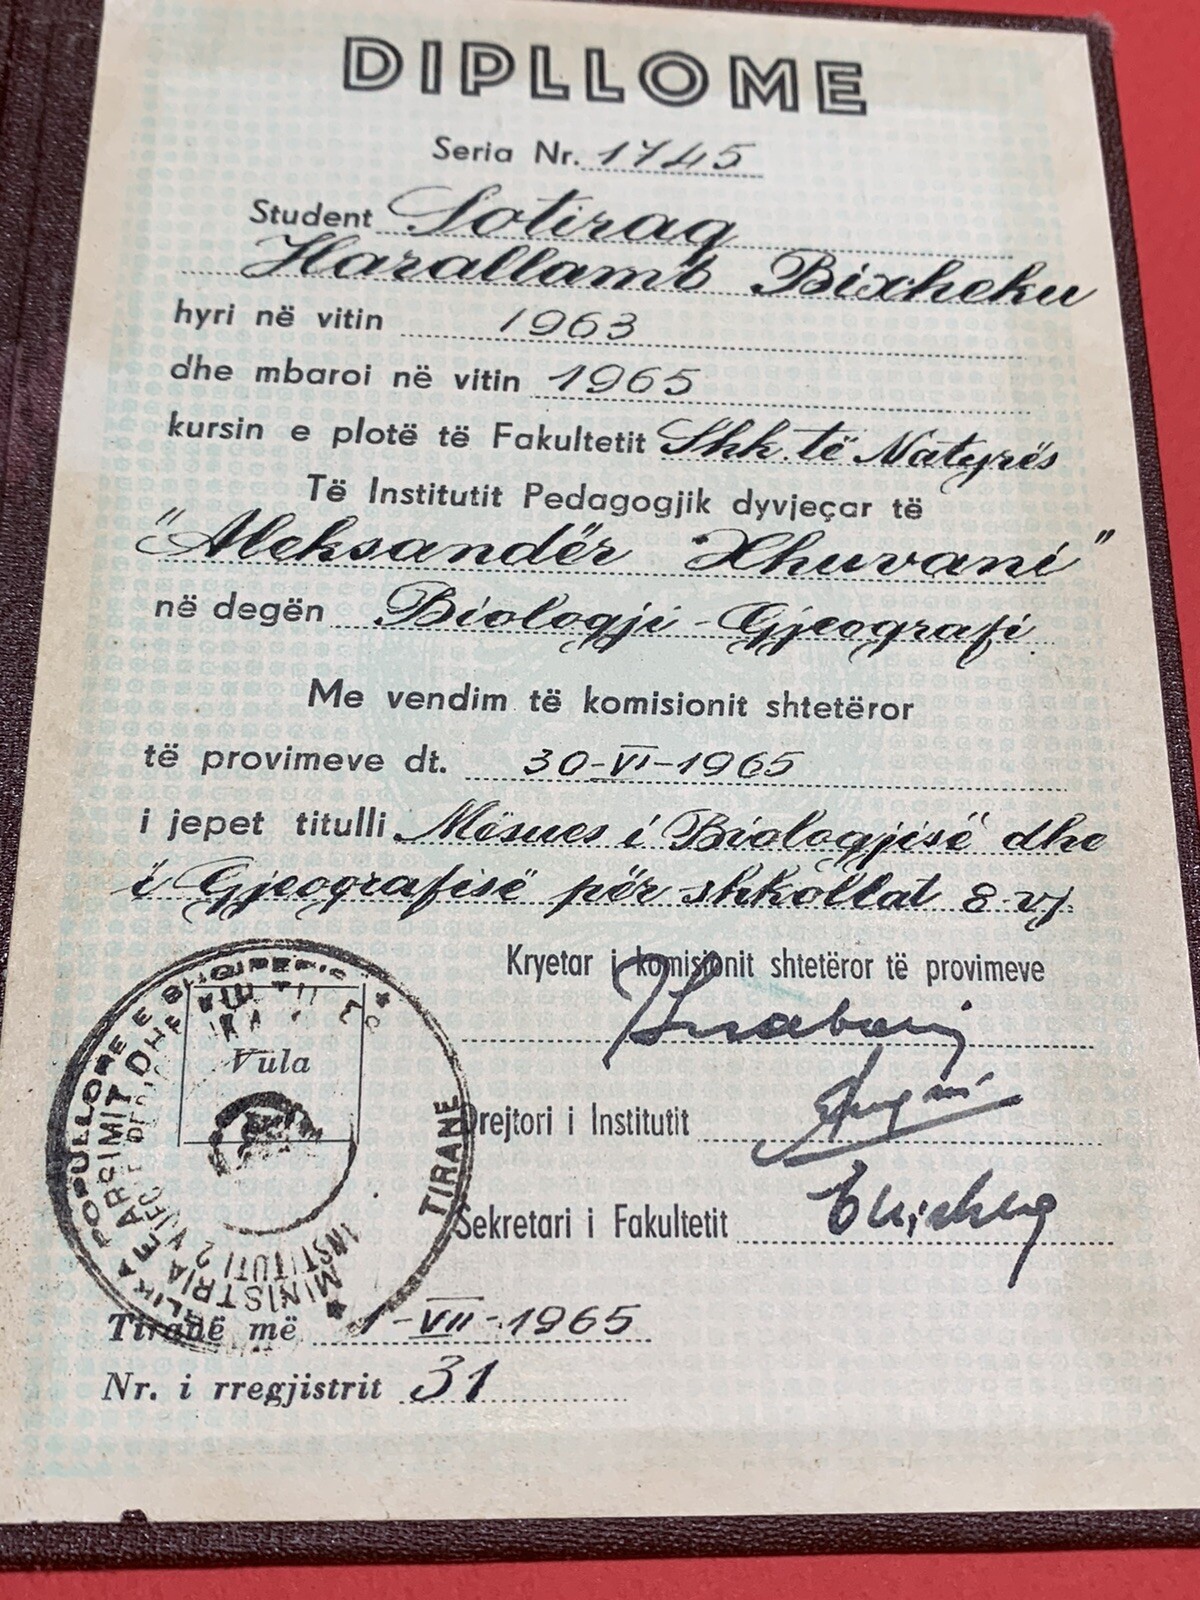 DIPLLOME
Seria Nr. 1745
Student Sotiraq
Harallamb Bixheku
hyri në vitin 1963
dhe mbaroi në vitin 1965
kursin e plotë të Fakultetit Shk. të Natyrës
Të Institutit Pedagogjik dyvjeçar të
"Aleksandër Xhuvani"
në degën Biologji-Gjeografi
Me vendim të komisionit shtetëror
të provimeve dt. 30-VI-1965
i jepet titulli Mësues i Biologjisë dhe
i Gjeografisë për shkollat 8-vj.
Kryetar i komisionit shtetëror të provimeve
Vula
Drejtori i Institutit
TIRANË
Sekretari i Fakultetit
Tiranë më 1-VII-1965
Nr. i rregjistrit 31